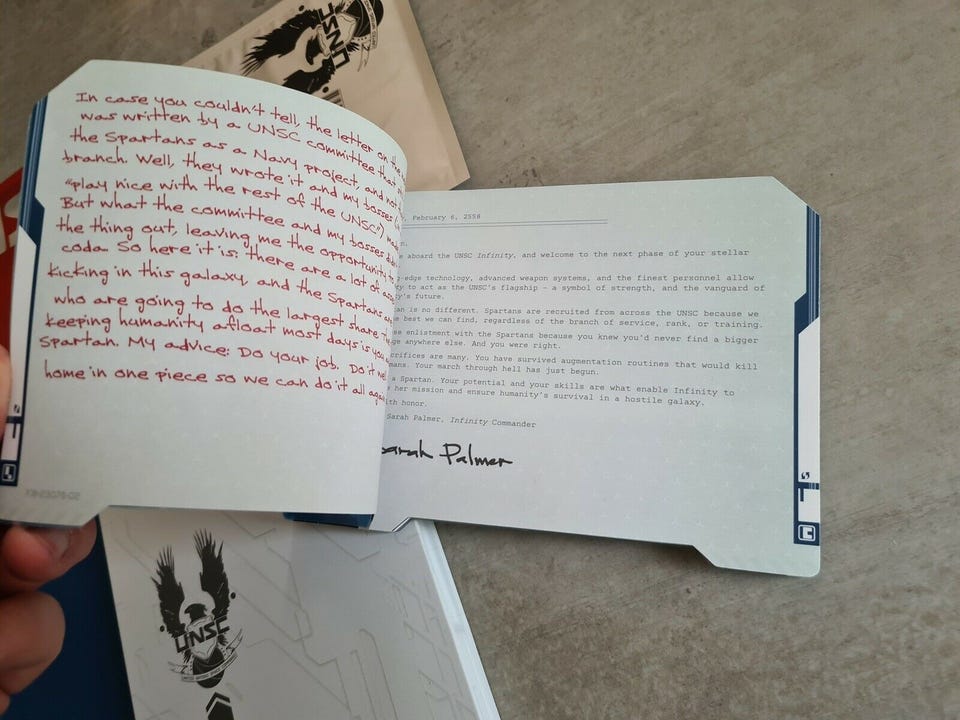 UNSC
In case you couldn't tell, the letter on the
was written by a UNSC committee that
the Spartans as a Navy project, and not
branch. Well, they wrote it and my bosses
"play nice with the rest of the UNSC")
But what the committee and my bosses
the thing out, leaving me the opportunity
coda. So here it is: there are a lot of
kicking in this galaxy, and the Spartans
who are going to do the largest share
keeping humanity afloat most days is
Spartan. My advice: Do your job. Do it
home in one piece so we can do it all
February 6, 2558
aboard the UNSC Infinity, and welcome to the next phase of your stellar
-edge technology, advanced weapon systems, and the finest personnel allow
to act as the UNSC's flagship – a symbol of strength, and the vanguard of
future.
is no different. Spartans are recruited from across the UNSC because we
best we can find, regardless of the branch of service, rank, or training.
enlistment with the Spartans because you knew you'd never find a bigger
anywhere else. And you were right.
are many. You have survived augmentation routines that would kill
Your march through hell has just begun.
a Spartan. Your potential and your skills are what enable Infinity to
her mission and ensure humanity's survival in a hostile galaxy.
honor.
Sarah Palmer, Infinity Commander
Sarah Palmer
UNSC